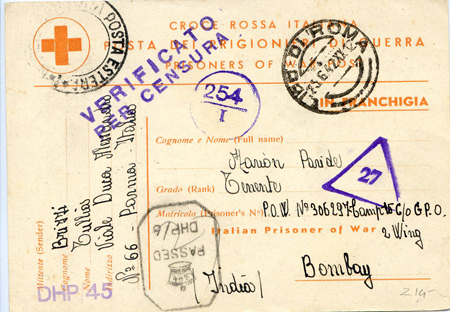 CROCE ROSSA ITALIANA
POSTA DEI PRIGIONIERI DI GUERRA
PRISONERS OF WAR POST
IN FRANCHIGIA
POSTA ESTERA
VERIFICATO
PER CENSURA
254
I
ROMA
27
Cognome e Nome (Full name)
Marion Paride
Grado (Rank)
Tenente
Matricola (Prisoner's No)
P.O.W. Nº 306297 Camp 15 C/o G.P.O.
Italian Prisoner of War
2 Wing
Bombay
(India)
PASSED
DHP/6
Mittente (Sender)
Cognome
Nome
Indirizzo
Tullia
Viale Duca
Nº 66 - Parma - Italia
DHP 45